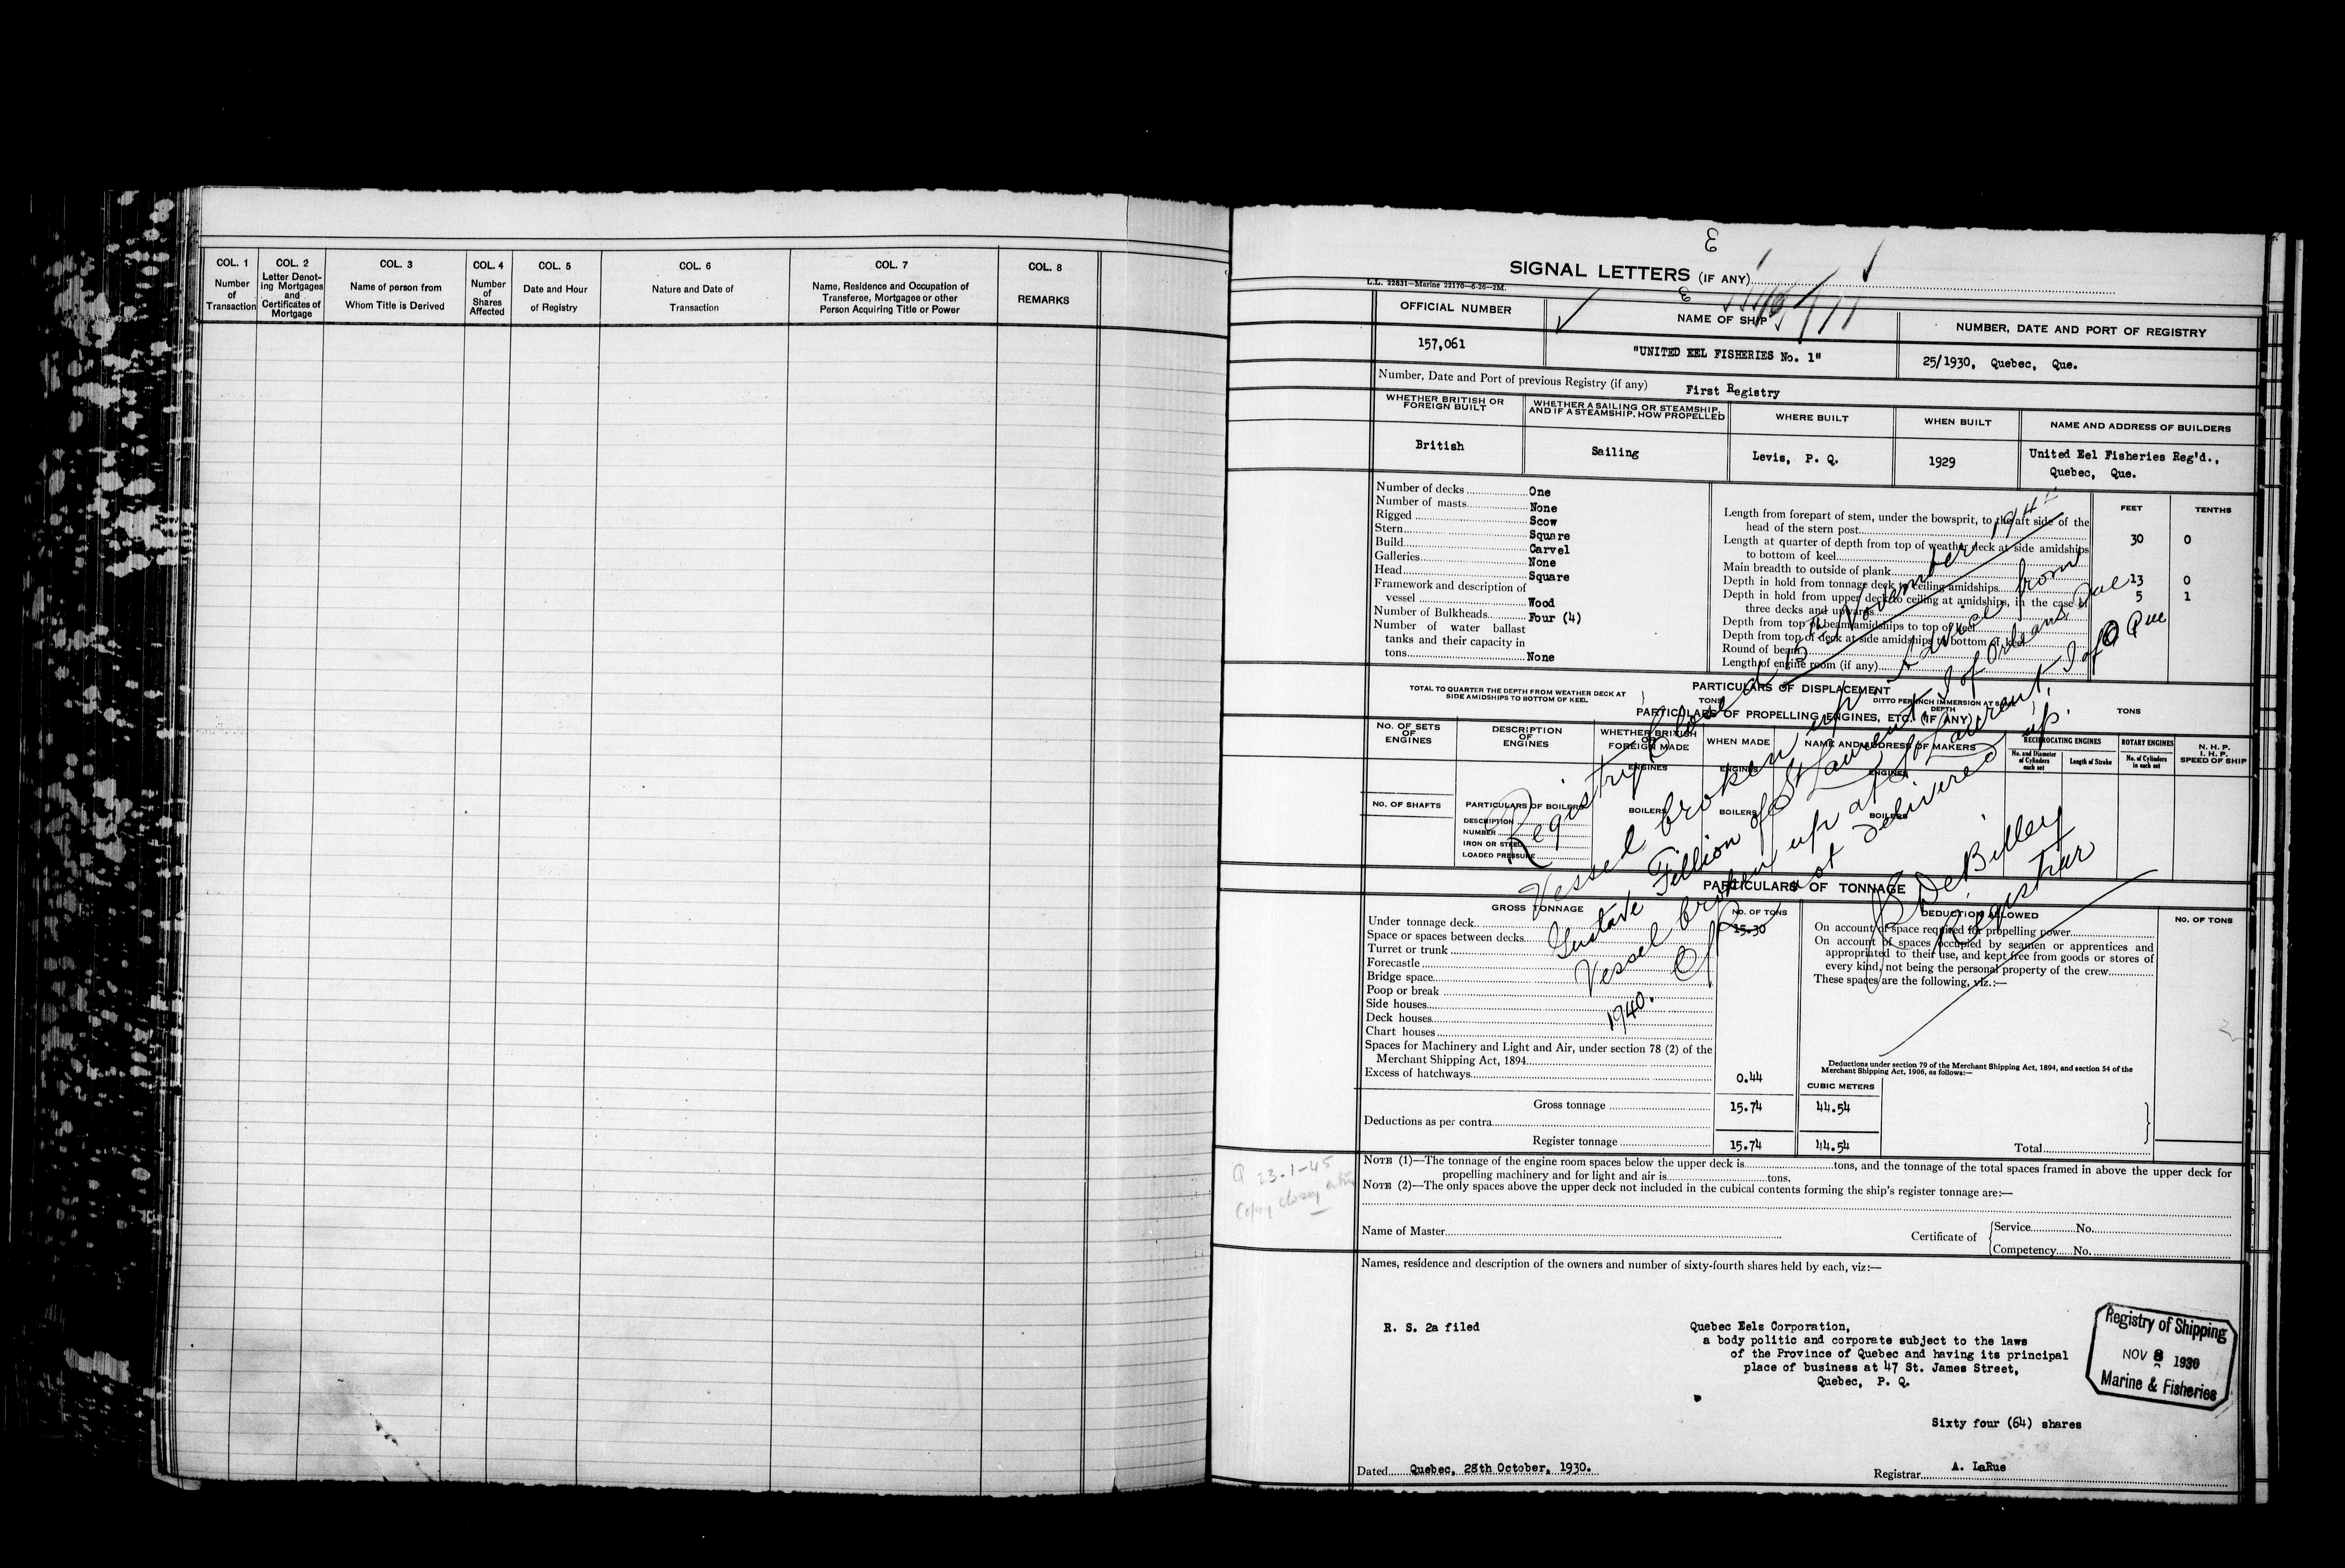 COL. 1
Number
of
Transaction
COL. 2
Letter Denot-
ing Mortgages
and
Certificates of
Mortgage
COL. 3
Name of person from
Whom Title is Derived
COL. 4
Number
of
Shares
Affected
COL. 5
Date and Hour
of Registry
COL. 6
Nature and Date of
Transaction
COL. 7
Name, Residence and Occupation of
Transferee, Mortgagee or other
Person Acquiring Title or Power
COL. 8
REMARKS
SIGNAL LETTERS (IF ANY)
L.L. 22831—Marine 22170—6-26—2M.
OFFICIAL NUMBER
NAME OF SHIP
NUMBER, DATE AND PORT OF REGISTRY
157,061
"UNITED EEL FISHERIES No. 1"
25/1930, Quebec, Que.
Number, Date and Port of previous Registry (if any) First Registry
WHETHER BRITISH OR
FOREIGN BUILT
WHETHER A SAILING OR STEAMSHIP,
AND IF A STEAMSHIP, HOW PROPELLED
WHERE BUILT
WHEN BUILT
NAME AND ADDRESS OF BUILDERS
British
Sailing
Levis, P. Q.
1929
United Eel Fisheries Reg'd.,
Quebec, Que.
Number of decks One
Number of masts None
Rigged Scow
Stern Square
Build Carvel
Galleries None
Head Square
Framework and description of
vessel Wood
Number of Bulkheads Four (4)
Number of water ballast
tanks and their capacity in
tons None
FEET TENTHS
Length from forepart of stem, under the bowsprit, to the aft side of the
head of the stern post 30 0
Length at quarter of depth from top of weather deck at side amidships
to bottom of keel
Main breadth to outside of plank 13 0
Depth in hold from tonnage deck to ceiling amidships 5 1
Depth in hold from upper deck to ceiling at amidships, in the case of
three decks and upwards
Depth from top of beam amidships to top of keel
Depth from top of deck at side amidships to bottom of keel
Round of beam
Length of engine room (if any)
PARTICULARS OF DISPLACEMENT
TOTAL TO QUARTER THE DEPTH FROM WEATHER DECK AT
SIDE AMIDSHIPS TO BOTTOM OF KEEL
TONS
DITTO PER INCH IMMERSION AT SAME
DEPTH
TONS
PARTICULARS OF PROPELLING ENGINES, ETC. (IF ANY)
NO. OF SETS
OF
ENGINES
DESCRIPTION
OF
ENGINES
WHETHER BRITISH
OR
FOREIGN MADE
WHEN MADE
NAME AND ADDRESS OF MAKERS
RECIPROCATING ENGINES
No. and Diameter
of Cylinders
each set
Length of Stroke
ROTARY ENGINES
No. of Cylinders
in each set
N. H. P.
I. H. P.
SPEED OF SHIP
ENGINES
ENGINES
ENGINES
NO. OF SHAFTS
PARTICULARS OF BOILERS
DESCRIPTION
NUMBER
IRON OR STEEL
LOADED PRESSURE
BOILERS
BOILERS
BOILERS
Registry closed 13th November 1944
Vessel broken up. Advice from
Gustave Fillion of St Laurent I of Orleans Que
Vessel broken up at St Laurent, I of O Que
1940. C of R not delivered up.
DeBilley
Registrar
PARTICULARS OF TONNAGE
GROSS TONNAGE
NO. OF TONS
DEDUCTION ALLOWED
NO. OF TONS
Under tonnage deck 15.30
Space or spaces between decks
Turret or trunk
Forecastle
Bridge space
Poop or break
Side houses
Deck houses
Chart houses
Spaces for Machinery and Light and Air, under section 78 (2) of the
Merchant Shipping Act, 1894
Excess of hatchways 0.44
CUBIC METERS
Gross tonnage 15.74 44.54
Deductions as per contra
Register tonnage 15.74 44.54
On account of space required for propelling power
On account of spaces occupied by seamen or apprentices and
appropriated to their use, and kept free from goods or stores of
every kind, not being the personal property of the crew
These spaces are the following, viz.:—
Deductions under section 79 of the Merchant Shipping Act, 1894, and section 54 of the
Merchant Shipping Act, 1906, as follows:—
Total
23-1-45
Copy closing entry
NOTE (1)—The tonnage of the engine room spaces below the upper deck is tons, and the tonnage of the total spaces framed in above the upper deck for
propelling machinery and for light and air is tons.
NOTE (2)—The only spaces above the upper deck not included in the cubical contents forming the ship's register tonnage are:—
Name of Master
Certificate of
Service No.
Competency No.
Names, residence and description of the owners and number of sixty-fourth shares held by each, viz:—
R. S. 2a filed
Quebec Eels Corporation,
a body politic and corporate subject to the laws
of the Province of Quebec and having its principal
place of business at 47 St. James Street,
Quebec, P. Q.
Registry of Shipping
NOV 8 1930
Marine & Fisheries
Sixty four (64) shares
Dated Quebec, 28th October, 1930.
Registrar A. LaRue